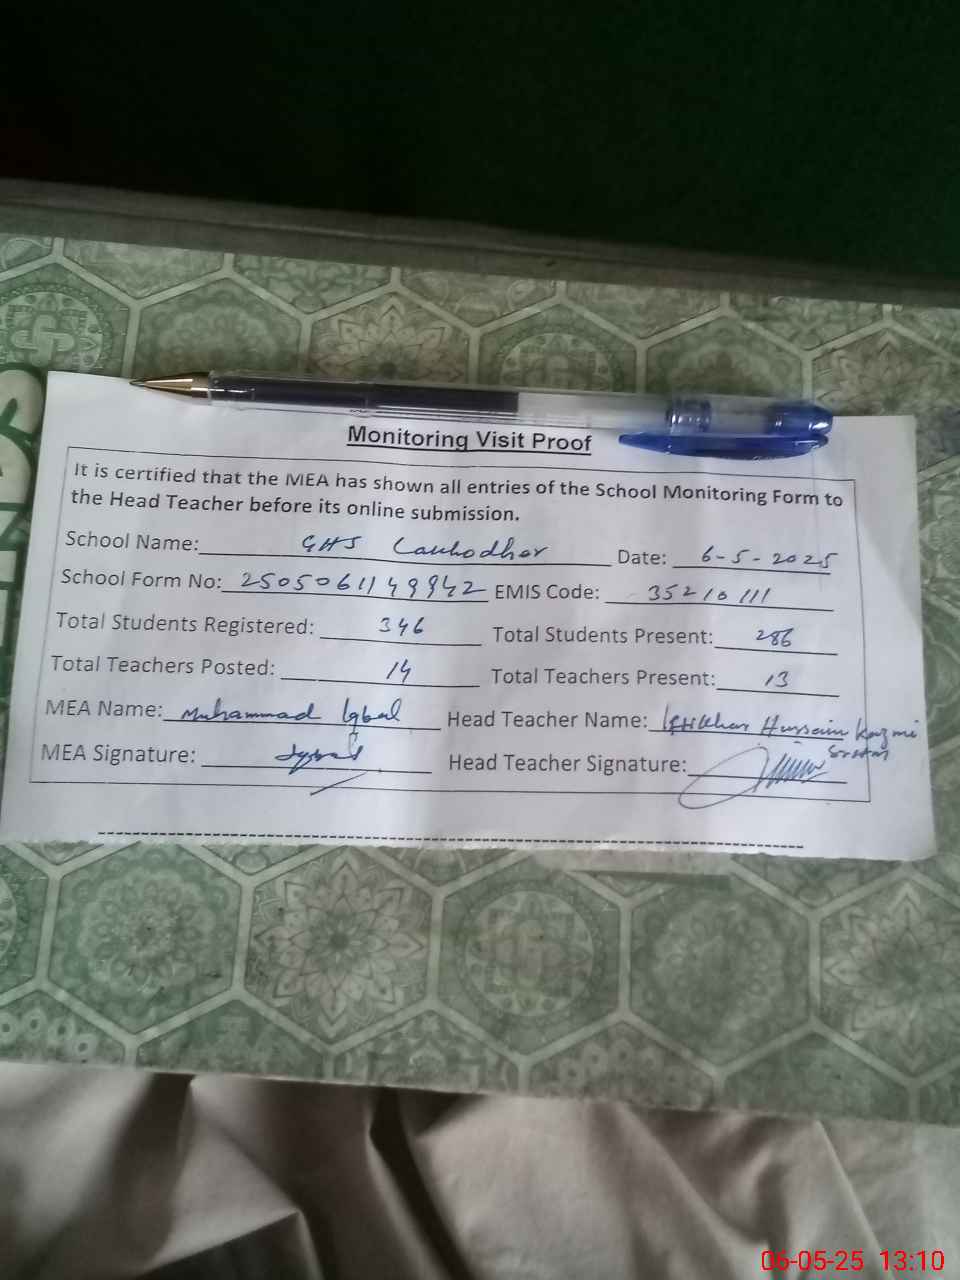 Monitoring Visit Proof
It is certified that the MEA has shown all entries of the School Monitoring Form to
the Head Teacher before its online submission.
School Name: GHS Lakhodher Date: 6-5-2025
School Form No: 2505061149942 EMIS Code: 35210111
Total Students Registered: 346 Total Students Present: 286
Total Teachers Posted: 14 Total Teachers Present: 13
MEA Name: Muhammad Iqbal Head Teacher Name: Iftikhar Hussain Kazmi
MEA Signature: Iqbal Head Teacher Signature:
06-05-25 13:10